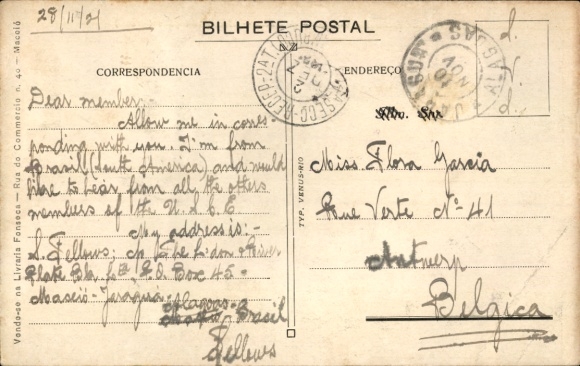 28/11/21
BILHETE POSTAL
CORRESPONDENCIA
ENDEREÇO
Dear member,
Allow me in corres
ponding with you. I'm from
Brasil (South America) and would
like to hear from all the others
members of the
My address is:-
S. Fellows: c/o The London & River
Plate Bk. Ld. P.O. Box 45-
Maceió-Jaraguá-
Alagoas-
Brasil
Fellows
Miss. Flora Garcia
Rue Verte Nº 41
Antwerp
Belgica
TYP. VENUS-RIO
Vende-se na Livraria Fonseca — Rua do Commercio n. 40 — Maceió